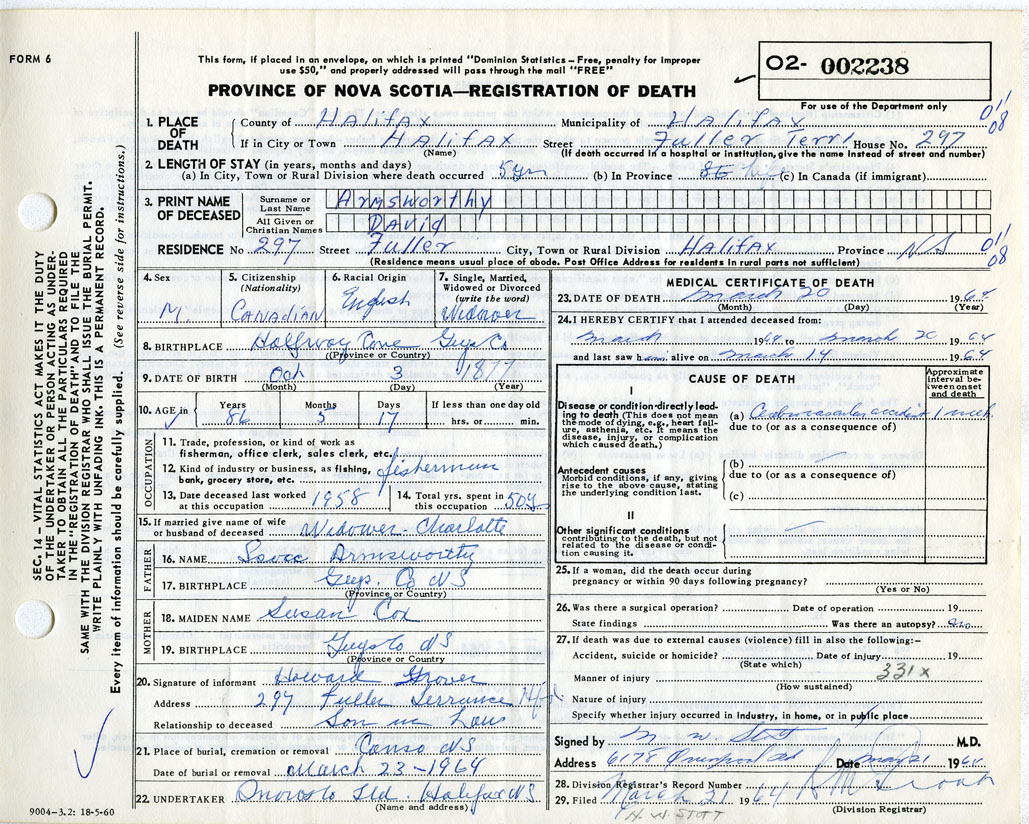 FORM 6
This form, if placed in an envelope, on which is printed "Dominion Statistics – Free, penalty for improper
use $50," and properly addressed will pass through the mail "FREE"
PROVINCE OF NOVA SCOTIA—REGISTRATION OF DEATH
02- 002238
For use of the Department only
1. PLACE OF DEATH
County of Halifax Municipality of Halifax
If in City or Town Halifax Street Fuller Terr House No. 297
(Name) (If death occurred in a hospital or institution, give the name instead of street and number)
2. LENGTH OF STAY (in years, months and days)
(a) In City, Town or Rural Division where death occurred 5 yrs (b) In Province (c) In Canada (if immigrant)
3. PRINT NAME OF DECEASED
Surname or Last Name Armsworthy
All Given or Christian Names David
RESIDENCE No 297 Street Fuller City, Town or Rural Division Halifax Province NS
(Residence means usual place of abode. Post Office Address for residents in rural parts not sufficient)
011
08
011
08
4. Sex M.
5. Citizenship (Nationality) Canadian
6. Racial Origin English
7. Single, Married, Widowed or Divorced (write the word) Widower
8. BIRTHPLACE Halfway Cove Guys Co
(Province or Country)
9. DATE OF BIRTH Oct 3 1877
(Month) (Day) (Year)
10. AGE in Years 86 Months 5 Days 17 If less than one day old hrs. or min.
OCCUPATION
11. Trade, profession, or kind of work as
fisherman, office clerk, sales clerk, etc.
12. Kind of industry or business, as fishing,
bank, grocery store, etc. fisherman
13. Date deceased last worked at this occupation 1958
14. Total yrs. spent in this occupation 50 y
15. If married give name of wife or husband of deceased Widower - Charlotte
FATHER
16. NAME Armsworthy
17. BIRTHPLACE Guys. Co NS
(Province or Country)
MOTHER
18. MAIDEN NAME Susan Cox
19. BIRTHPLACE Guys Co NS
(Province or Country
20. Signature of informant Howard Grover
Address 297 Fuller Terrance Hfx
Relationship to deceased Son in Law
21. Place of burial, cremation or removal Canso NS
Date of burial or removal March 23 - 1964
22. UNDERTAKER Ltd. Halifax NS
(Name and address)
MEDICAL CERTIFICATE OF DEATH
23. DATE OF DEATH March 20 1964
(Month) (Day) (Year)
24. I HEREBY CERTIFY that I attended deceased from:
March 1964 to March 20 1964
and last saw him alive on March 14 1964
CAUSE OF DEATH
Approximate interval between onset and death
I
Disease or condition directly lead-
ing to death (This does not mean
the mode of dying, e.g., heart fail-
ure, asthenia, etc. It means the
disease, injury, or complication
which caused death.)
(a) Cerebrovascular accident 1 week
due to (or as a consequence of)
Antecedent causes
Morbid conditions, if any, giving
rise to the above cause, stating
the underlying condition last.
(b) —
due to (or as a consequence of)
(c)
II
Other significant conditions
contributing to the death, but not
related to the disease or condi-
tion causing it.
25. If a woman, did the death occur during
pregnancy or within 90 days following pregnancy?
(Yes or No)
26. Was there a surgical operation? Date of operation 19
State findings Was there an autopsy? no
27. If death was due to external causes (violence) fill in also the following:–
Accident, suicide or homicide? Date of injury 19
(State which)
Manner of injury 331 x
(How sustained)
Nature of injury
Specify whether injury occurred in industry, in home, or in public place
Signed by M.D.
Address 6178 Date 21 1964
28. Division Registrar's Record Number
29. Filed March 21 1964
(Division Registrar)
H. W. STOTT
SEC. 14 – VITAL STATISTICS ACT MAKES IT THE DUTY
OF THE UNDERTAKER OR PERSON ACTING AS UNDER-
TAKER TO OBTAIN ALL THE PARTICULARS REQUIRED
IN THE "REGISTRATION OF DEATH" AND TO FILE THE
SAME WITH THE DIVISION REGISTRAR WHO SHALL ISSUE THE BURIAL PERMIT.
WRITE PLAINLY WITH UNFADING INK. THIS IS A PERMANENT RECORD.
Every item of information should be carefully supplied. (See reverse side for instructions.)
9004-3.2: 18-5-60